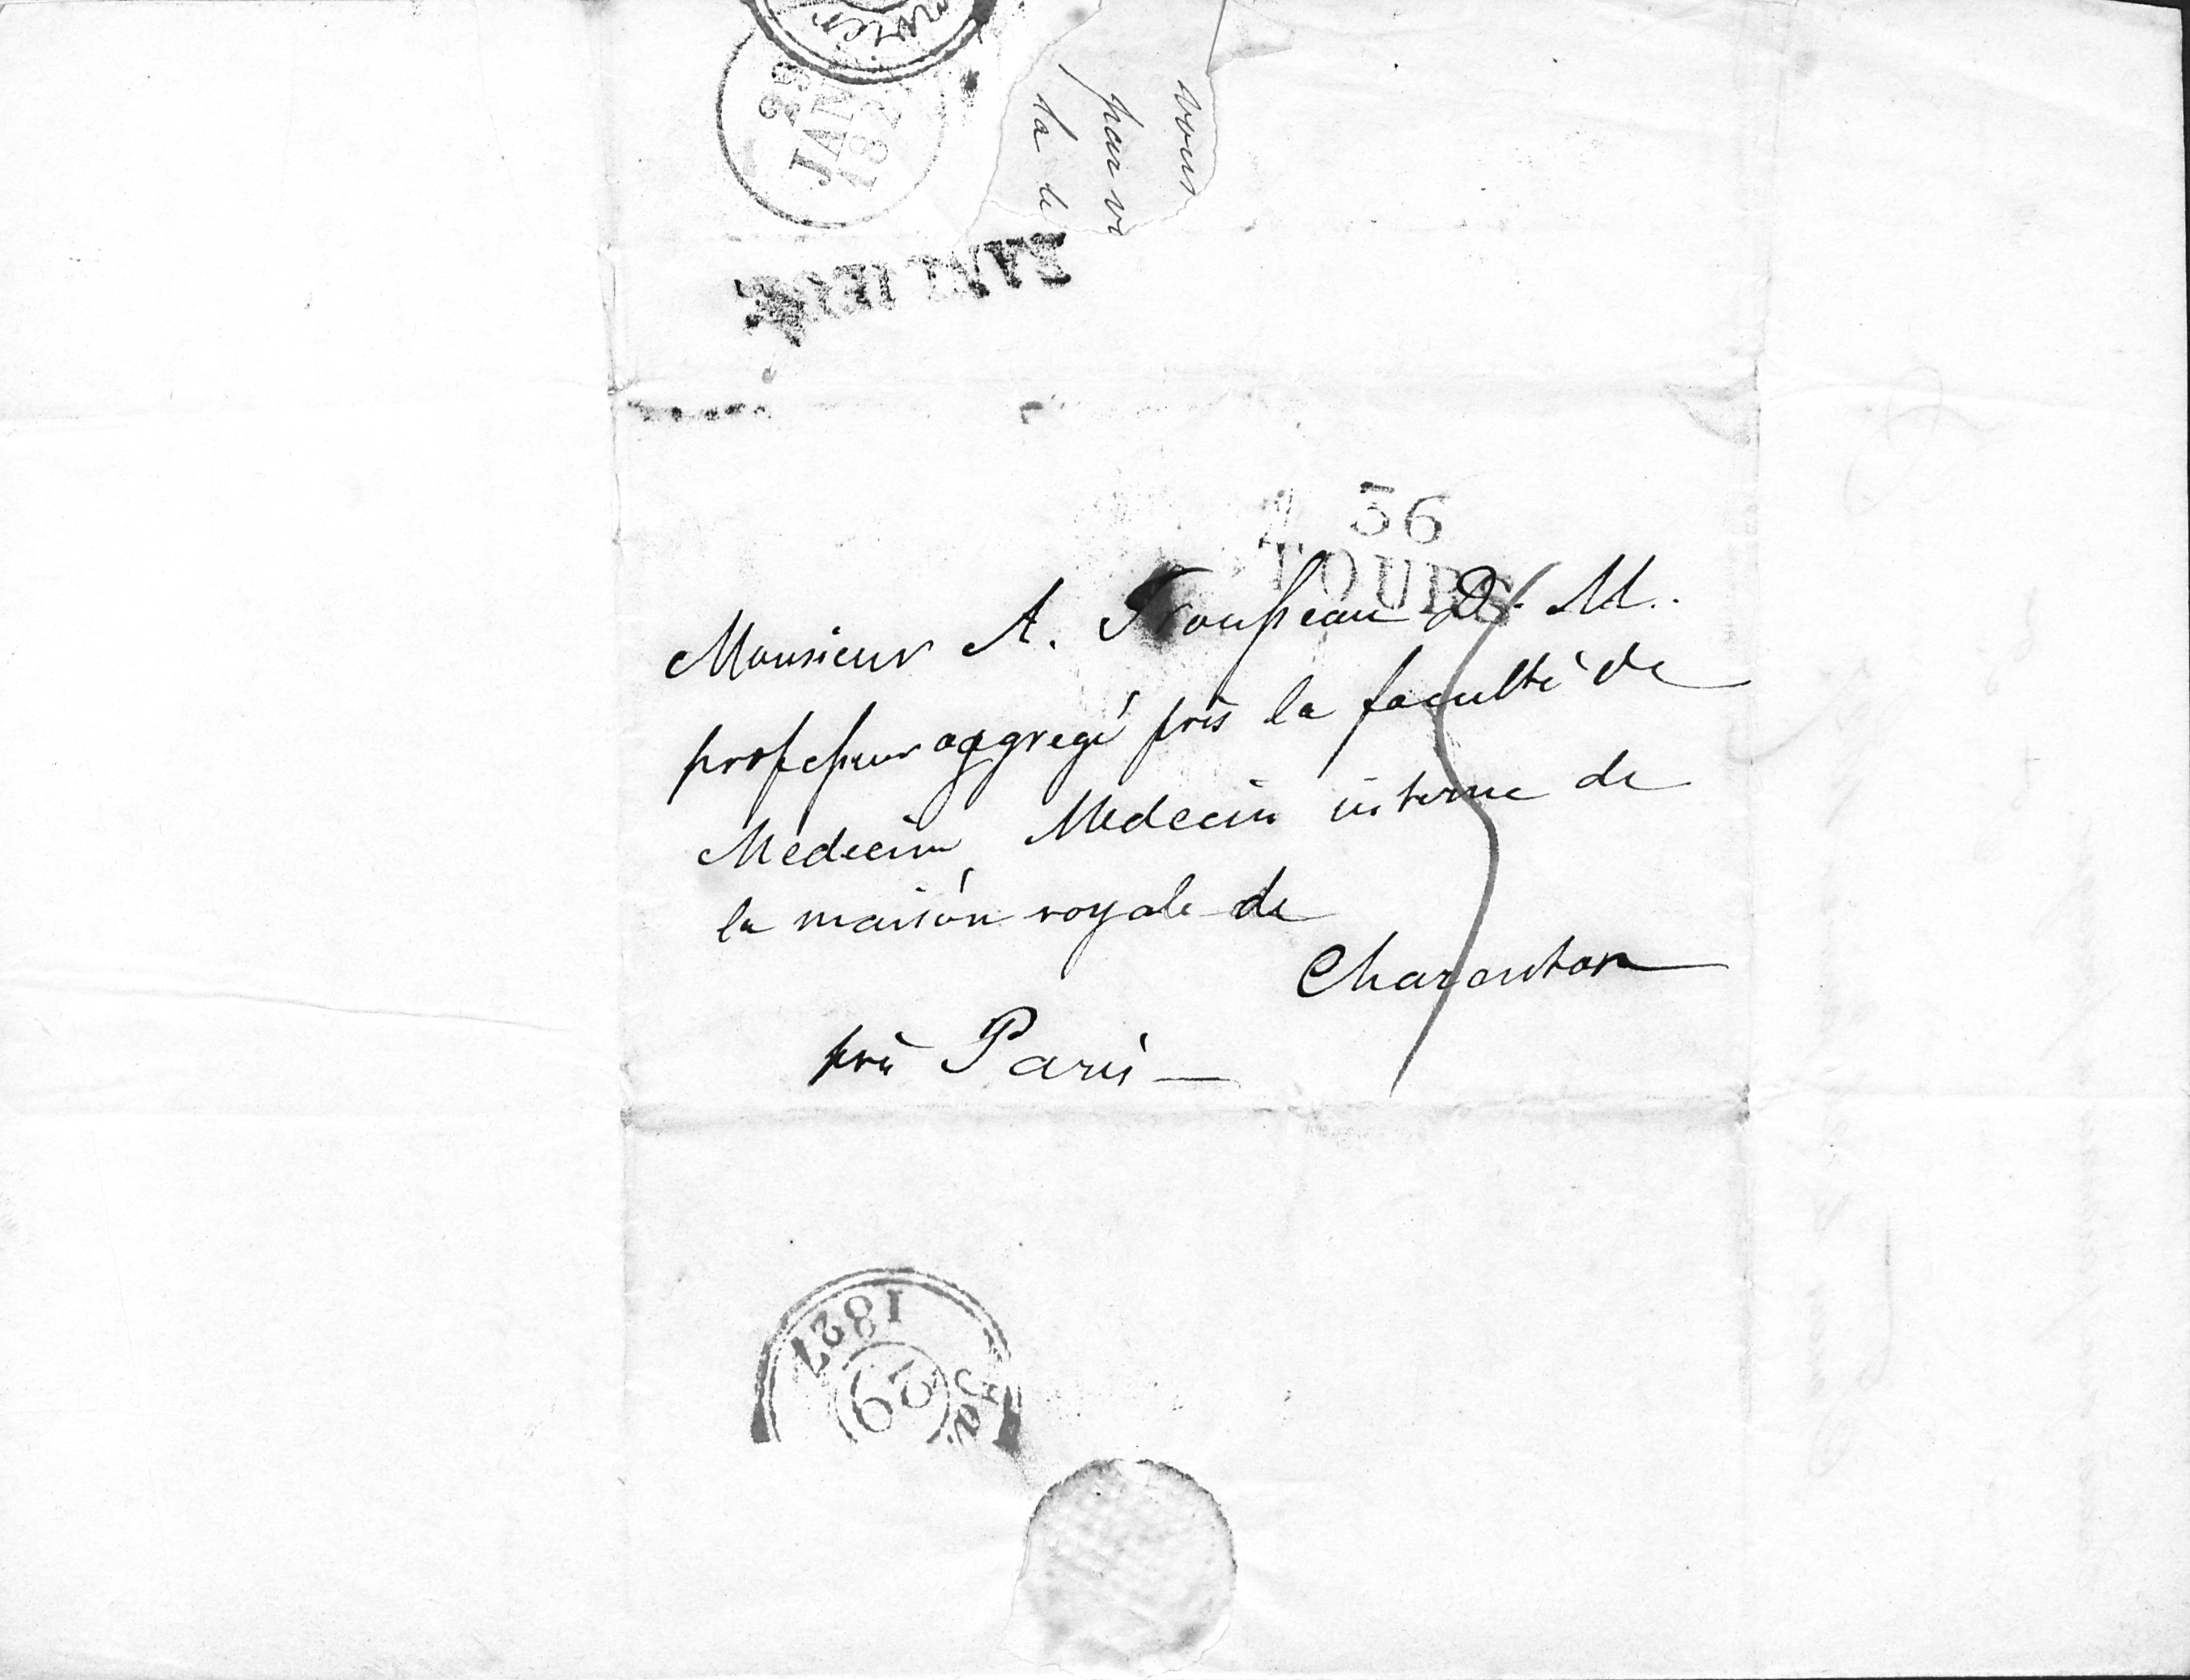 nvier
29
JAN
182
vous
par
la
BANLIEUE
36
TOURS
Monsieur A. Trousseau D. M.
professeur aggregé près la faculté de
Medecine Medecin interne de
la maison royale de
Charenton
près Paris —
1827
29
Ja